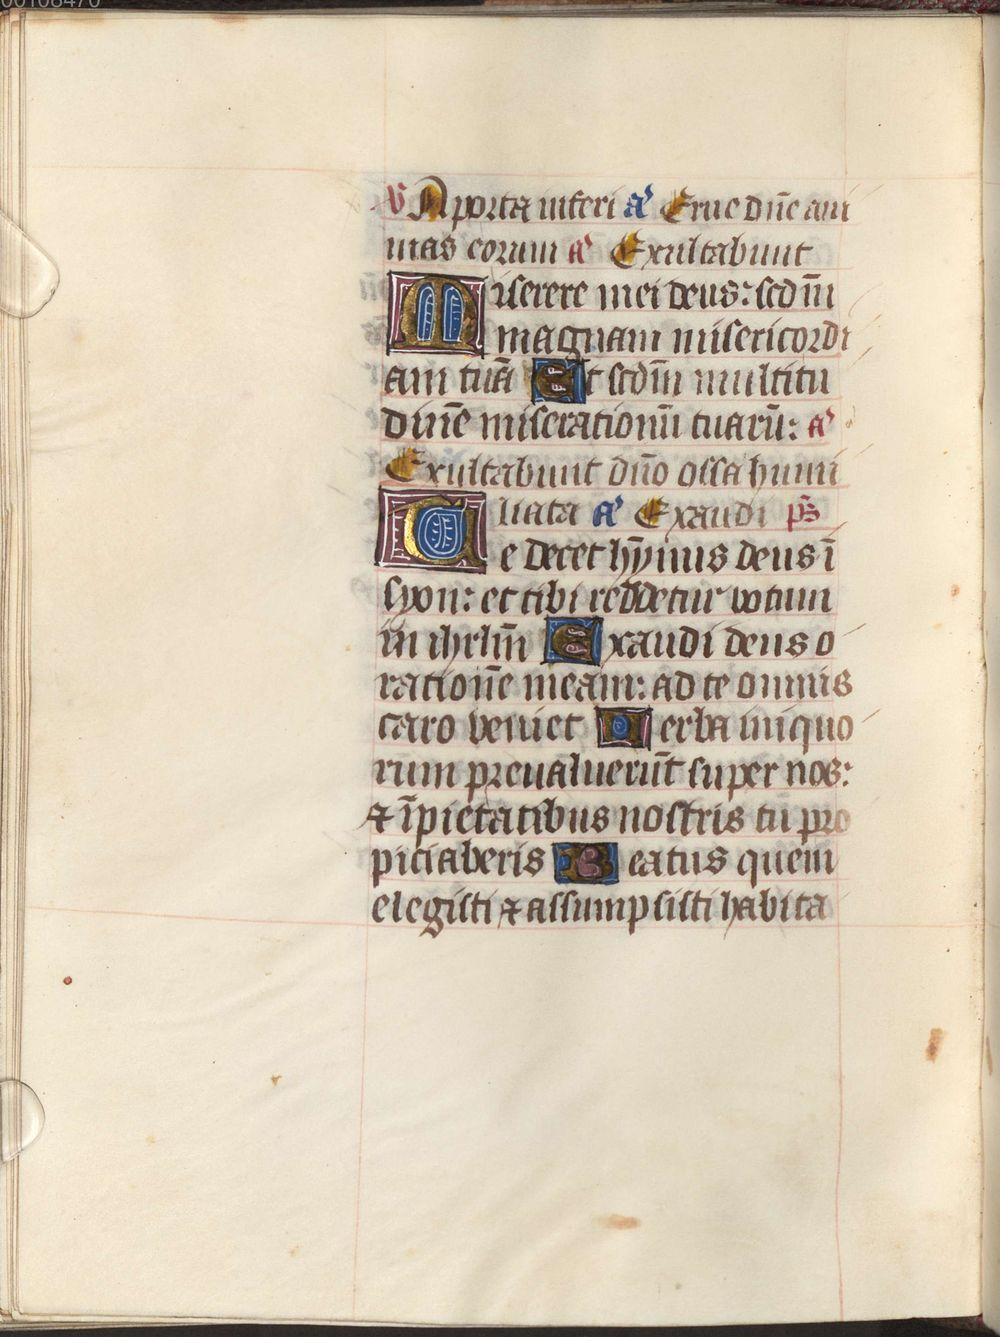 V A porta inferi a Erue dñe ani
mas eorum a Exultabunt
Miserere mei deus: scdm̄
magnam misericordi
am tuā Et scdm̄ multitu
dinē miserationū tuarū: a
Exultabunt dño ossa humi
liata a Exaudi ps
Te decet hȳmnus deus ī
syon: et tibi reddetur votum
in ihrlm̄ Exaudi deus o
rationē meam: ad te omnis
caro veniet Verba iniquo
rum preualuerūt super nos:
⁊ īpietatibus nostris tu pro
piciaberis Beatus quem
elegisti ⁊ assumpsisti habita